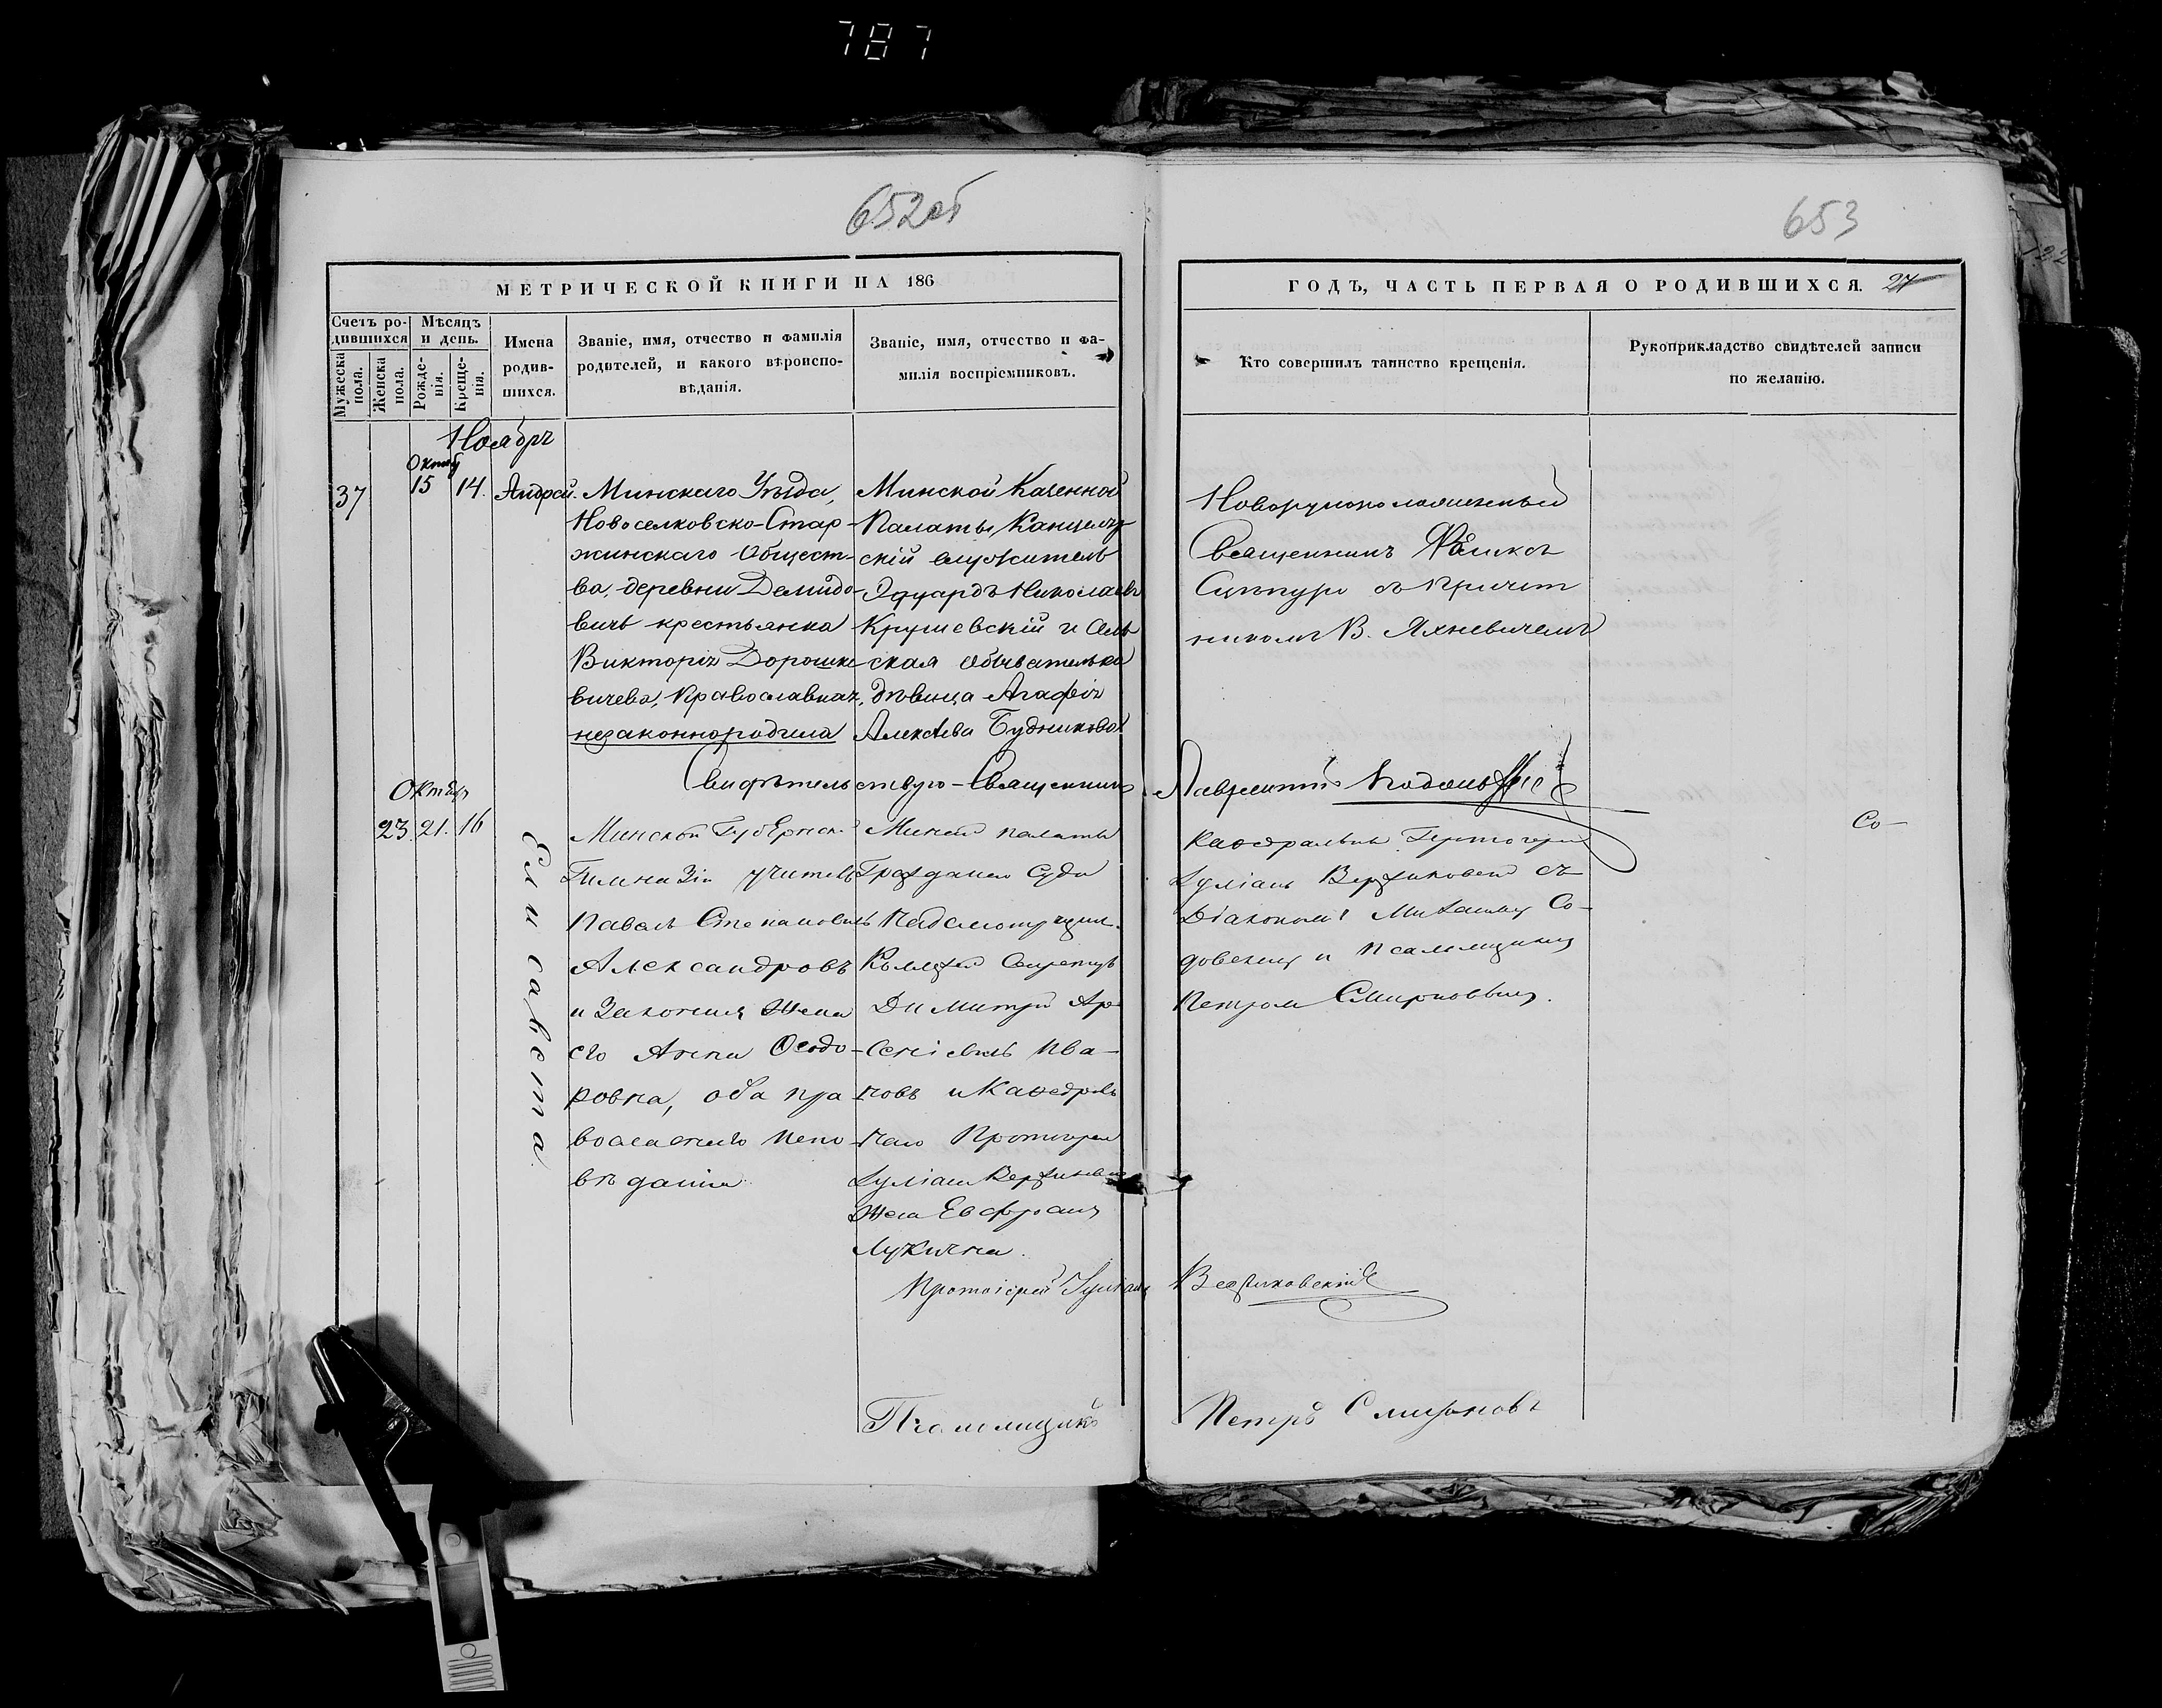 787
652об
653
МЕТРИЧЕСКОЙ КНИГИ НА 186
ГОДЪ, ЧАСТЬ ПЕРВАЯ О РОДИВШИХСЯ. 27
Счетъ родившихся
Мужеска пола.
Женска пола.
Мѣсяцъ и день.
Рожденія.
Крещенія.
Имена родившихся.
Званіе, имя, отчество и фамилія
родителей, и какого вѣроиспо-
вѣданія.
Званіе, имя, отчество и фа-
милія воспріемниковъ.
Кто совершилъ таинство крещенія.
Рукоприкладство свидѣтелей записи
по желанію.
Ноябрь
Октяб
37
15
14.
Андрей.
Минскаго Уѣзда,
Новоселковско-Стар-
жинскаго Общест-
ва, деревни Демидо-
вичъ крестьянка
Викторія Дорошке
вичева, Православная,
незаконнородила
Минской Казенной
Палаты Канцеляр
скій служитель
Эдуардъ Николаевъ
Крушевскій и Сель
ская обывателька
дѣвица Агафія
Алексѣева Будникова
Новорукоположенный
Священникъ
съ Причет
никомъ В. Яхневичемъ
Свидѣтельствую-Священникъ Лаврентій
Октябр
23. 21. 16
Елисавета
Минской Губернск.
Гимназіи учитель
Павелъ Степановичъ
Александровъ
и Законная Жена
его Анна Ѳеодо-
ровна, оба пра
вославнаго испо
вѣданія
Минской палаты
Гражданск Суда
Коллежскій Секретарь
Димитрій Ар
сеніевичъ Ива-
новъ и Каѳедраль
наго Протоіерея
Іуліана
Жена Евфросинія
Лукична.
Каѳедральный Протоіерей
Іуліанъ съ
Діакономъ Михаиломъ Со-
и псаломщикомъ
Петромъ Смирновымъ.
Со-
Протоіерей Іуліанъ
Псаломщикъ Петръ Смирновъ